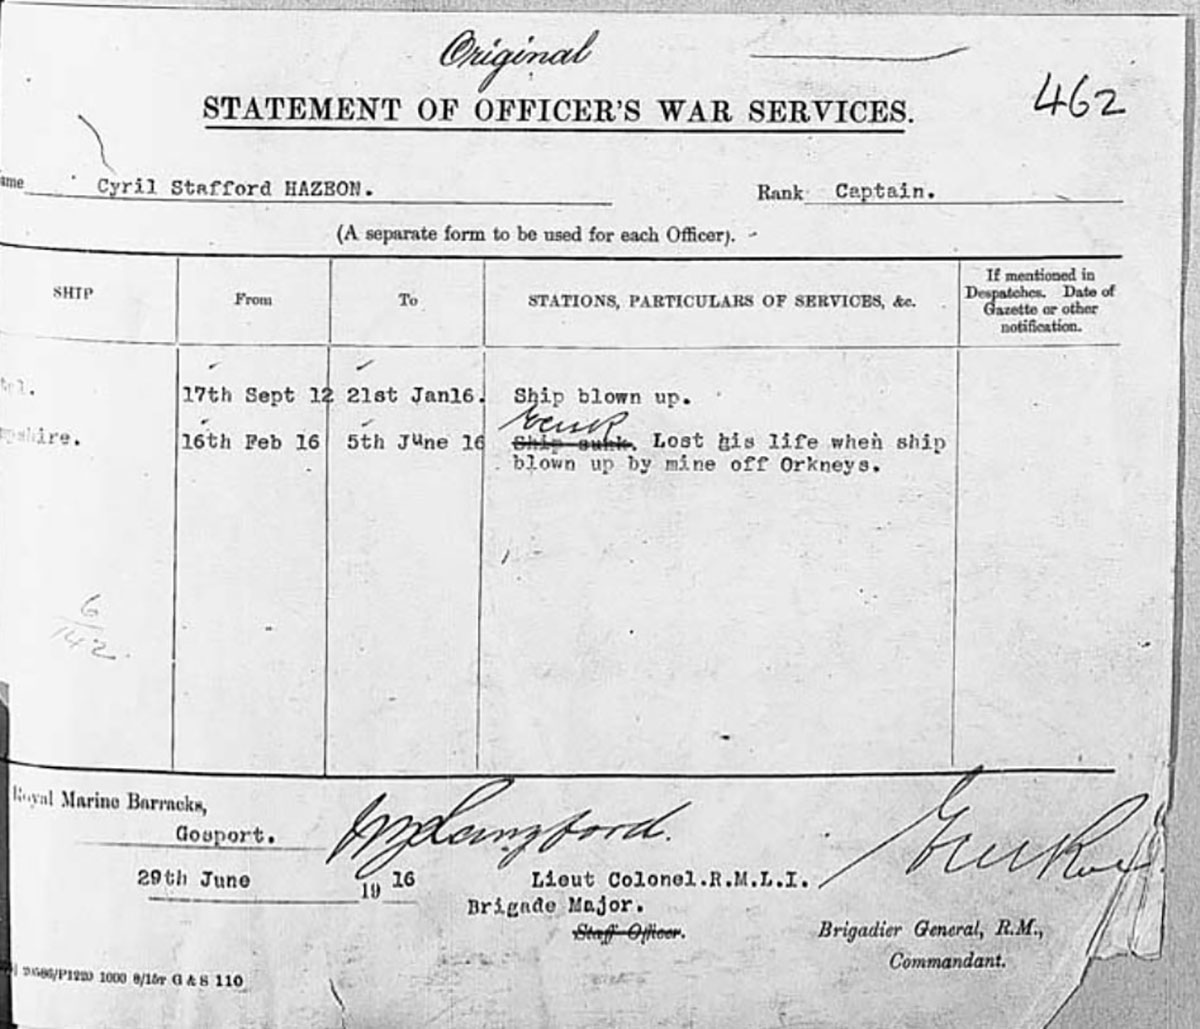 Original
462
STATEMENT OF OFFICER'S WAR SERVICES.
ame Cyril Stafford HAZEON. Rank Captain.
(A separate form to be used for each Officer).
SHIP From To STATIONS, PARTICULARS OF SERVICES, &c. If mentioned in
Despatches. Date of
Gazette or other
notification.
tal. 17th Sept 12 21st Jan16. Ship blown up.
pshire. 16th Feb 16 5th June 16 Ship sunk. Lost his life when ship
blown up by mine off Orkneys.
6
142
Royal Marine Barracks,
Gosport.
29th June 19 16
Langford.
Lieut Colonel.R.M.L.I.
Brigade Major.
Staff Officer.
Brigadier General, R.M.,
Commandant.
1000 8/15r G & S 110